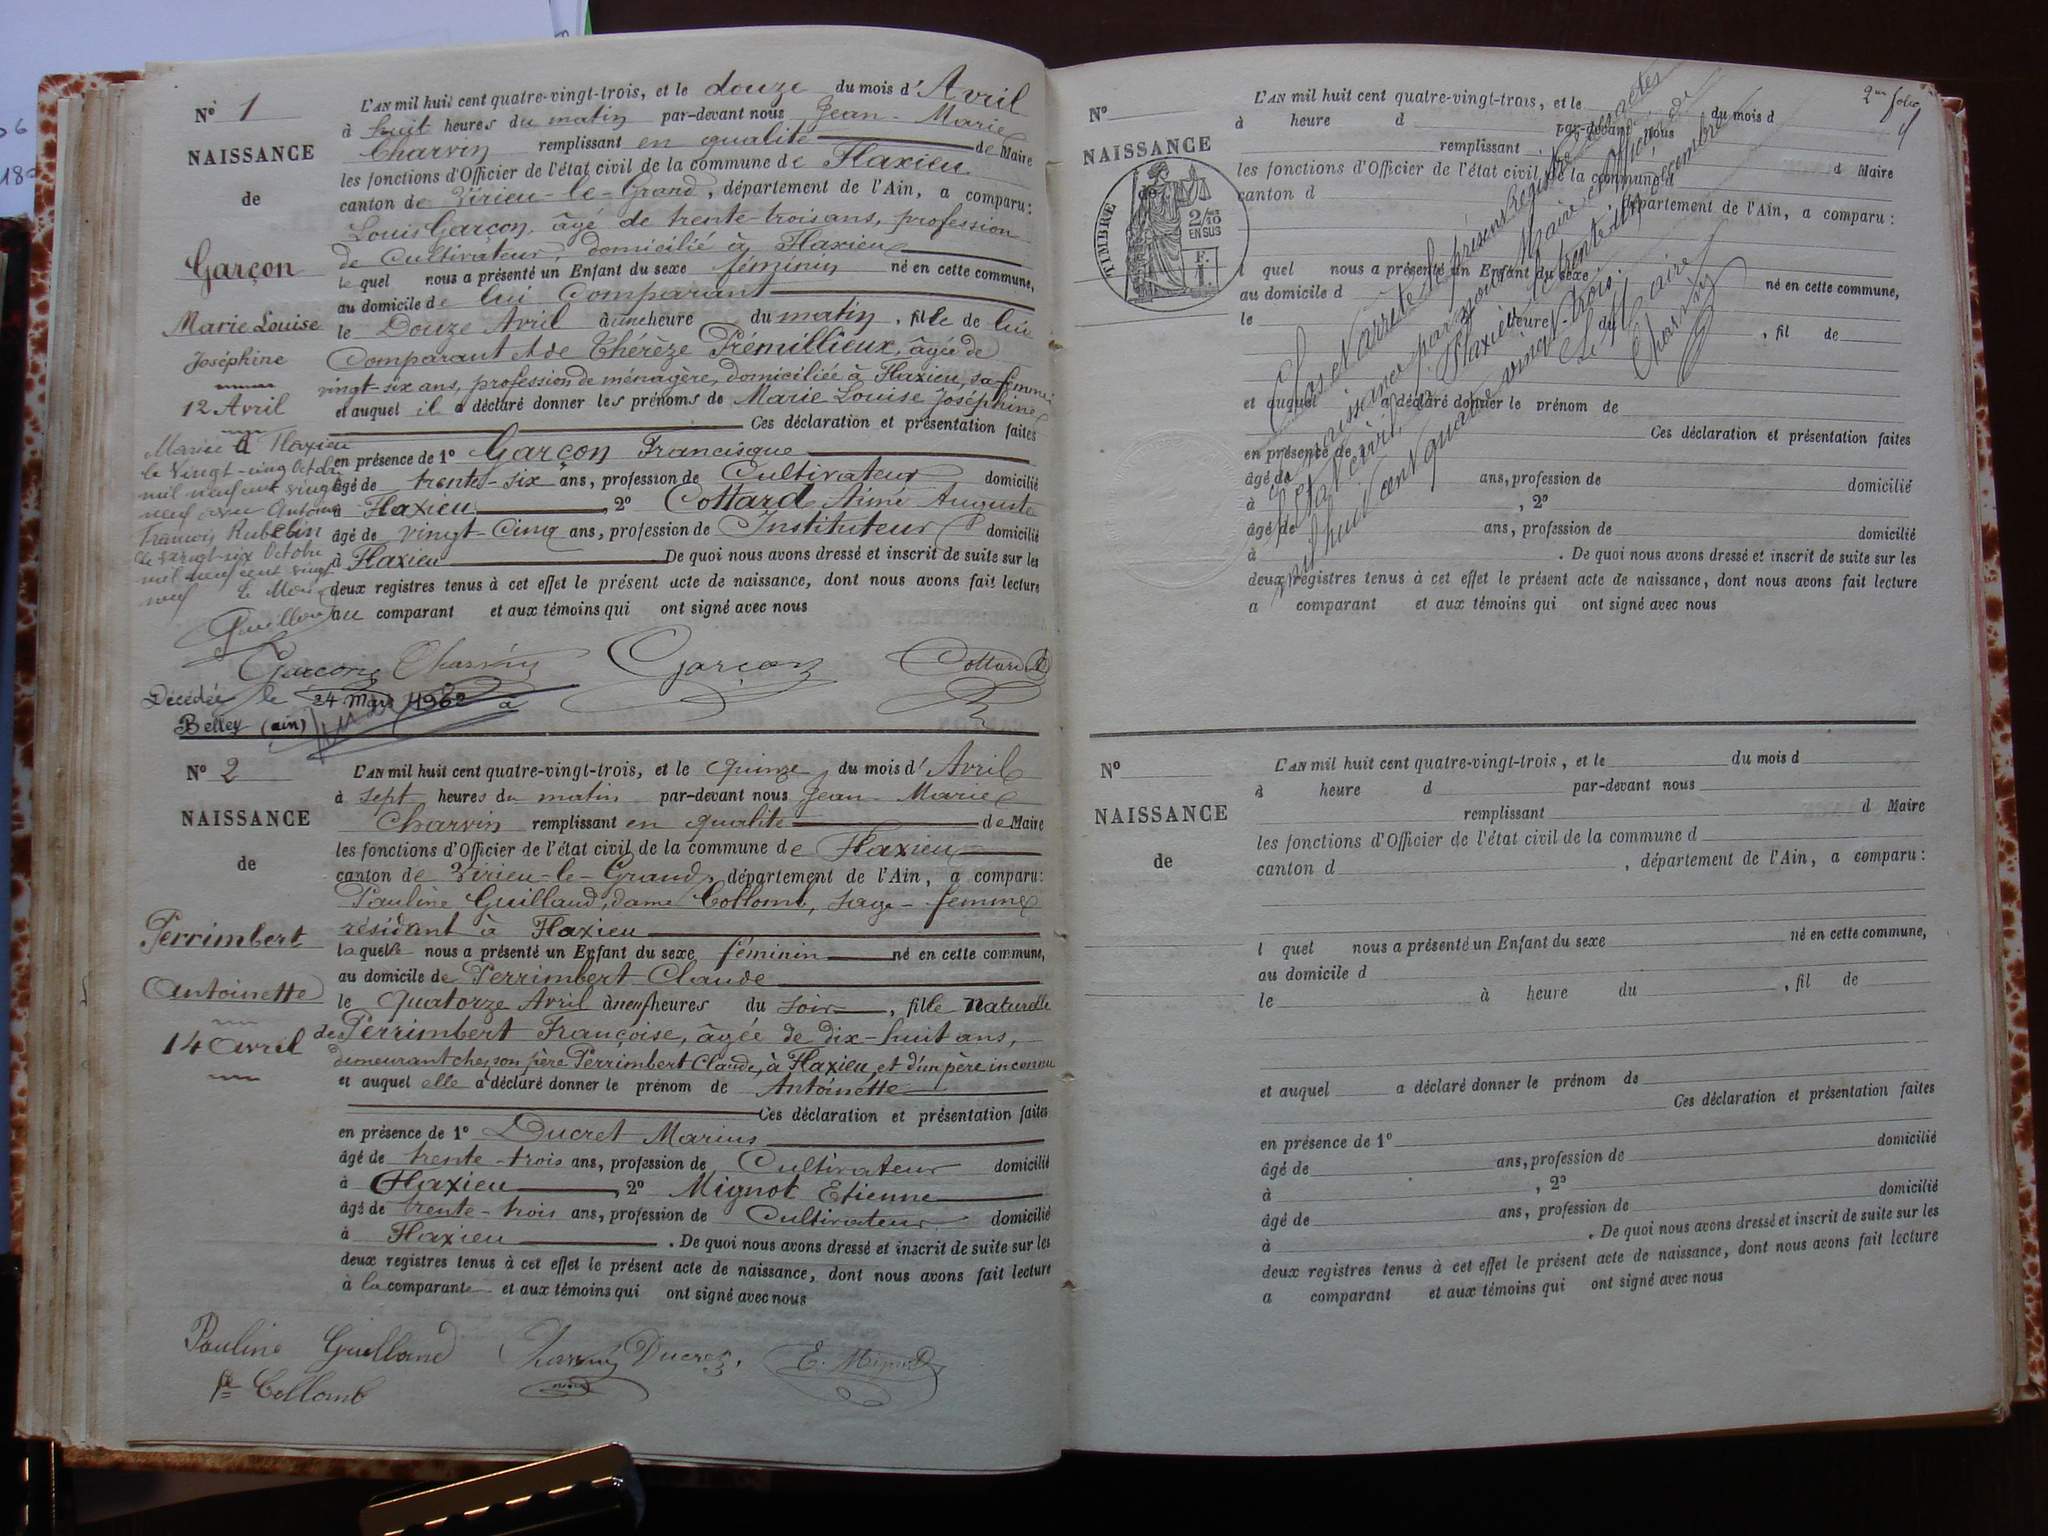 N° 1
NAISSANCE
de
Garçon
Marie Louise
Joséphine
12 Avril
Mariée à Flaxieu
le vingt-cinq Octobre
mil neuf cent vingt
neuf avec Antoine
François Rubelin
le vingt-six Octobre
mil neuf cent vingt
neuf Le Maire
Guilland
L'AN mil huit cent quatre-vingt-trois, et le douze du mois d'Avril
à huit heures du matin par-devant nous Jean-Marie
Charvin remplissant en qualité de Maire
les fonctions d'Officier de l'état civil de la commune de Flaxieu
canton de Virieu-le-Grand, département de l'Ain, a comparu:
Louis Garçon, âgé de trente-trois ans, profession
de Cultivateur, domicilié à Flaxieu
lequel nous a présenté un Enfant du sexe féminin né en cette commune,
au domicile de lui Comparant
le Douze Avril à une heure du matin, fille de lui
Comparant et de Thérèze Prémillieux, âgée de
vingt-six ans, profession de ménagère, domiciliée à Flaxieu, sa femme
et auquel il a déclaré donner les prénoms de Marie Louise Joséphine
Ces déclaration et présentation faites
en présence de 1° Garçon Francisque
âgé de trente-six ans, profession de Cultivateur domicilié
à Flaxieu, 2° Cottard Aimé Auguste
âgé de vingt-cinq ans, profession de Instituteur domicilié
à Flaxieu De quoi nous avons dressé et inscrit de suite sur les
deux registres tenus à cet effet le présent acte de naissance, dont nous avons fait lecture
au comparant et aux témoins qui ont signé avec nous
Garçon Charvin Garçon Cottard
Décédée le 24 Mars 1962 à
Belley (ain)
N° 2
NAISSANCE
de
Perrimbert
Antoinette
14 Avril
L'AN mil huit cent quatre-vingt-trois, et le quinze du mois d'Avril
à sept heures du matin par-devant nous Jean-Marie
Charvin remplissant en qualité de Maire
les fonctions d'Officier de l'état civil de la commune de Flaxieu
canton de Virieu-le-Grand, département de l'Ain, a comparu:
Pauline Guilland, dame Collomb, sage-femme
résidant à Flaxieu
laquelle nous a présenté un Enfant du sexe féminin né en cette commune,
au domicile de Perrimbert Claude
le quatorze Avril à neuf heures du soir, fille naturelle
de Perrimbert Françoise, âgée de dix-huit ans,
demeurant chez son père Perrimbert Claude, à Flaxieu, et d'un père inconnu
et auquel elle a déclaré donner le prénom de Antoinette
Ces déclaration et présentation faites
en présence de 1° Ducret Marius
âgé de trente-trois ans, profession de Cultivateur domicilié
à Flaxieu, 2° Mignot Etienne
âgé de trente-trois ans, profession de Cultivateur domicilié
à Flaxieu. De quoi nous avons dressé et inscrit de suite sur les
deux registres tenus à cet effet le présent acte de naissance, dont nous avons fait lecture
à la comparante et aux témoins qui ont signé avec nous
Pauline Guilland Charvin Ducret. E. Mignot
fe Collomb
2me folio
N°
NAISSANCE
de
TIMBRE
2/10 EN SUS
F. 1.
L'AN mil huit cent quatre-vingt-trois, et le du mois d
à heure d par-devant nous
remplissant d Maire
les fonctions d'Officier de l'état civil de la commune d
canton d département de l'Ain, a comparu:
l quel nous a présenté un Enfant du sexe né en cette commune,
au domicile d
le heure du, fil de
et auquel a déclaré donner le prénom de
Ces déclaration et présentation faites
en présence de
âgé de ans, profession de domicilié
à, 2°
âgé de ans, profession de domicilié
à. De quoi nous avons dressé et inscrit de suite sur les
deux registres tenus à cet effet le présent acte de naissance, dont nous avons fait lecture
a comparant et aux témoins qui ont signé avec nous
Clos et arrêté le présent registre des actes
de naissance par nous, Maire et Officier de
l'état civil, à Flaxieu, le trente-un décembre
mil huit cent quatre-vingt-trois.
Le Maire
Charvin
N°
NAISSANCE
de
L'AN mil huit cent quatre-vingt-trois, et le du mois d
à heure d par-devant nous
remplissant d Maire
les fonctions d'Officier de l'état civil de la commune d
canton d, département de l'Ain, a comparu:
l quel nous a présenté un Enfant du sexe né en cette commune,
au domicile d
le à heure du, fil de
et auquel a déclaré donner le prénom de
Ces déclaration et présentation faites
en présence de 1°
âgé de ans, profession de domicilié
à, 2°
âgé de ans, profession de domicilié
à. De quoi nous avons dressé et inscrit de suite sur les
deux registres tenus à cet effet le présent acte de naissance, dont nous avons fait lecture
a comparant et aux témoins qui ont signé avec nous